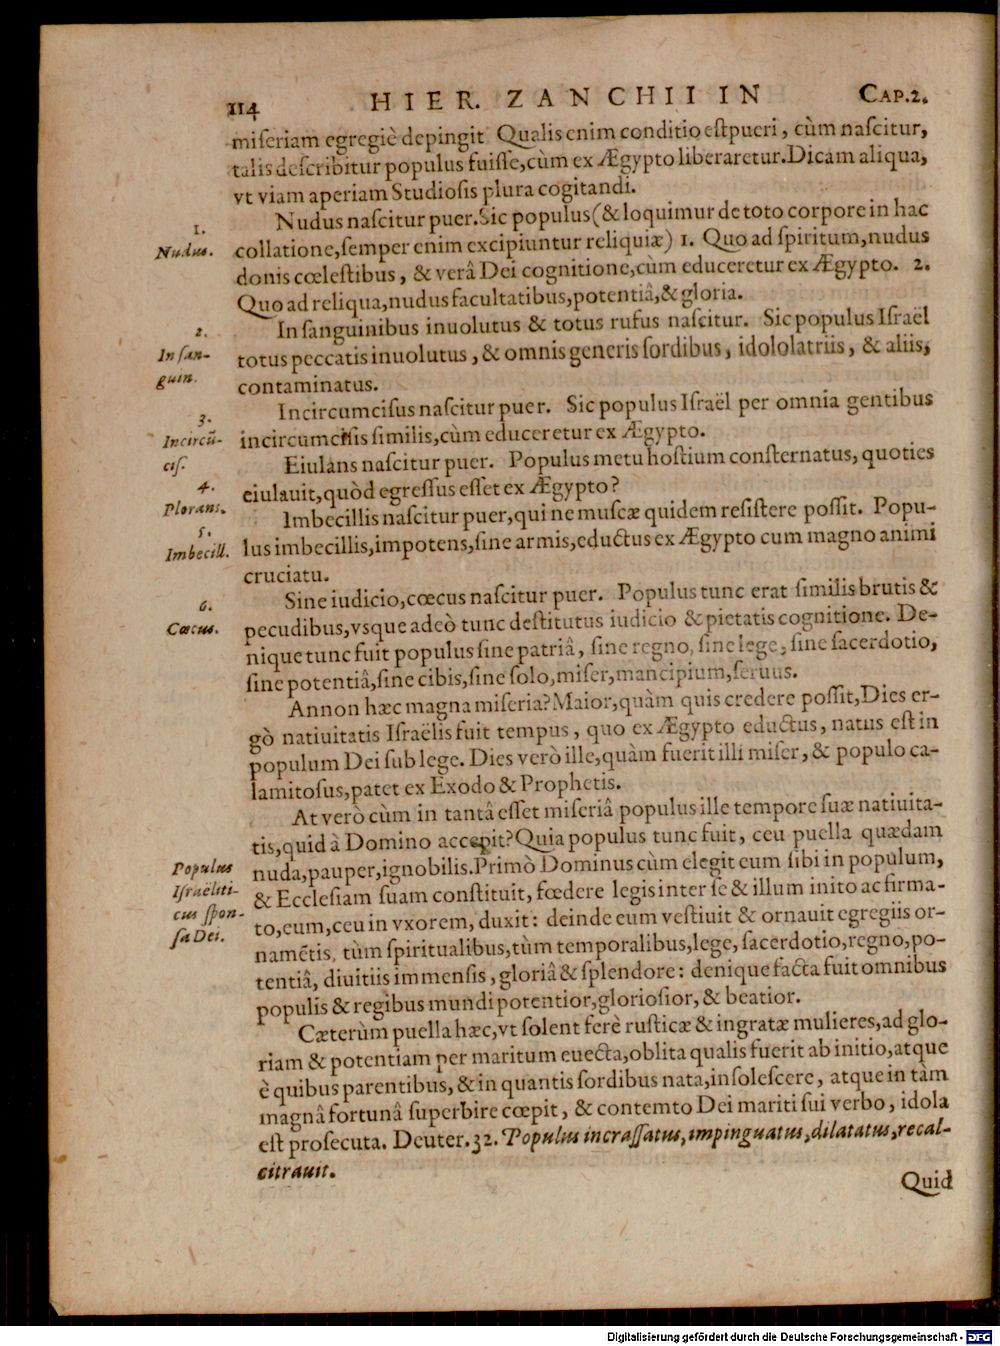 114 HIER. ZANCHII IN CAP.2.
miſeriam egregiè depingit Qualis enim conditio eſt pueri, cùm naſcitur,
talis deſcribitur populus fuiſſe, cùm ex Ægypto liberaretur. Dicam aliqua,
vt viam aperiam Studioſis plura cogitandi.
1.
Nudus.
Nudus naſcitur puer. Sic populus (& loquimur de toto corpore in hac
collatione, ſemper enim excipiuntur reliquiæ) 1. Quo ad ſpiritum, nudus
donis cœleſtibus, & verâ Dei cognitione, cùm educeretur ex Ægypto. 2.
Quo ad reliqua, nudus facultatibus, potentiâ, & gloria.
2.
In ſan-
guin.
In ſanguinibus inuolutus & totus rufus naſcitur. Sic populus Iſraël
totus peccatis inuolutus, & omnis generis ſordibus, idololatriis, & aliis,
contaminatus.
3.
Incircũ-
ciſ.
Incircumciſus naſcitur puer. Sic populus Iſraël per omnia gentibus
incircumciſis ſimilis, cùm educeretur ex Ægypto.
4.
Plorans.
Eiulans naſcitur puer. Populus metu hoſtium conſternatus, quoties
eiulauit, quòd egreſſus eſſet ex Ægypto?
5.
Imbecill.
Imbecillis naſcitur puer, qui ne muſcæ quidem reſiſtere poſſit. Popu-
lus imbecillis, impotens, ſine armis, eductus ex Ægypto cum magno animi
cruciatu.
6.
Cæcus.
Sine iudicio, cœcus naſcitur puer. Populus tunc erat ſimilis brutis &
pecudibus, vsque adeò tunc deſtitutus iudicio & pietatis cognitione. De-
nique tunc fuit populus ſine patriâ, ſine regno, ſine lege, ſine ſacerdotio,
ſine potentiâ, ſine cibis, ſine ſolo, miſer, mancipium, ſeruus.
Annon hæc magna miſeria? Maior, quàm quis credere poſſit, Dies er-
gò natiuitatis Iſraëlis fuit tempus, quo ex Ægypto eductus, natus eſt in
populum Dei ſub lege. Dies verò ille, quàm fuerit illi miſer, & populo ca-
lamitoſus, patet ex Exodo & Prophetis.
At verò cùm in tantâ eſſet miſeriâ populus ille tempore ſuæ natiuita-
tis, quid à Domino accepit? Quia populus tunc fuit, ceu puella quædam
nuda, pauper, ignobilis. Primò Dominus cùm elegit eum ſibi in populum,
& Eccleſiam ſuam conſtituit, fœdere legis inter ſe & illum inito ac firma-
to, eum, ceu in vxorem, duxit: deinde eum veſtiuit & ornauit egregiis or-
namẽtis, tùm ſpiritualibus, tùm temporalibus, lege, ſacerdotio, regno, po-
tentiâ, diuitiis immenſis, gloriâ & ſplendore: denique facta fuit omnibus
populis & regibus mundi potentior, glorioſior, & beatior.
Populus
Iſraëliti-
cus ſpon-
ſa Dei.
Cæterùm puella hæc, vt ſolent ferè ruſticæ & ingratæ mulieres, ad glo-
riam & potentiam per maritum euecta, oblita qualis fuerit ab initio, atque
è quibus parentibus, & in quantis ſordibus nata, inſoleſcere, atque in tàm
magnâ fortunâ ſuperbire cœpit, & contemto Dei mariti ſui verbo, idola
eſt proſecuta. Deuter. 32. Populus incraſſatus, impinguatus, dilatatus, recal-
citrauit.
Quid
Digitalisierung gefördert durch die Deutsche Forschungsgemeinschaft - DFG